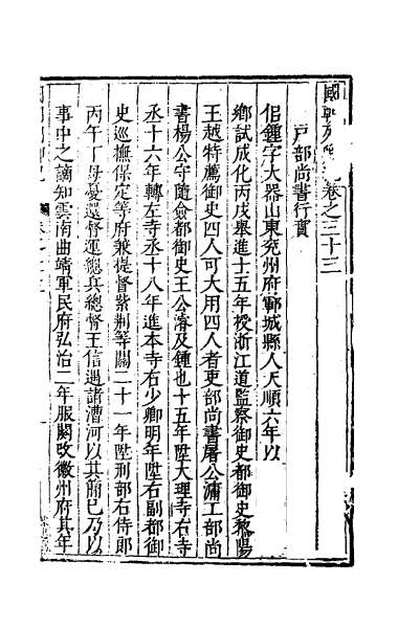 國朝列卿紀卷之三十三
戶部尚書行實
侣鍾字大器山東兖州府鄆城縣人天順六年以
鄉試成化丙戌舉進十五年授浙江道監察御史都御史黎陽
王越特薦御史四人可大用四人者吏部尚書屠公滽工部尚
書楊公守隨僉都御史王公濬及鍾也十五年陞大理寺右寺
丞十六年轉左寺丞十八年進本寺右少卿明年陞右副都御
史巡撫保定等府兼提督紫荆等關二十一年陞刑部右侍郎
丙午丁母憂還督運總兵總督王信遇諸漕河以其前已乃以
事中之謫知雲南曲靖軍民府弘治二年服闋改徽州府其年